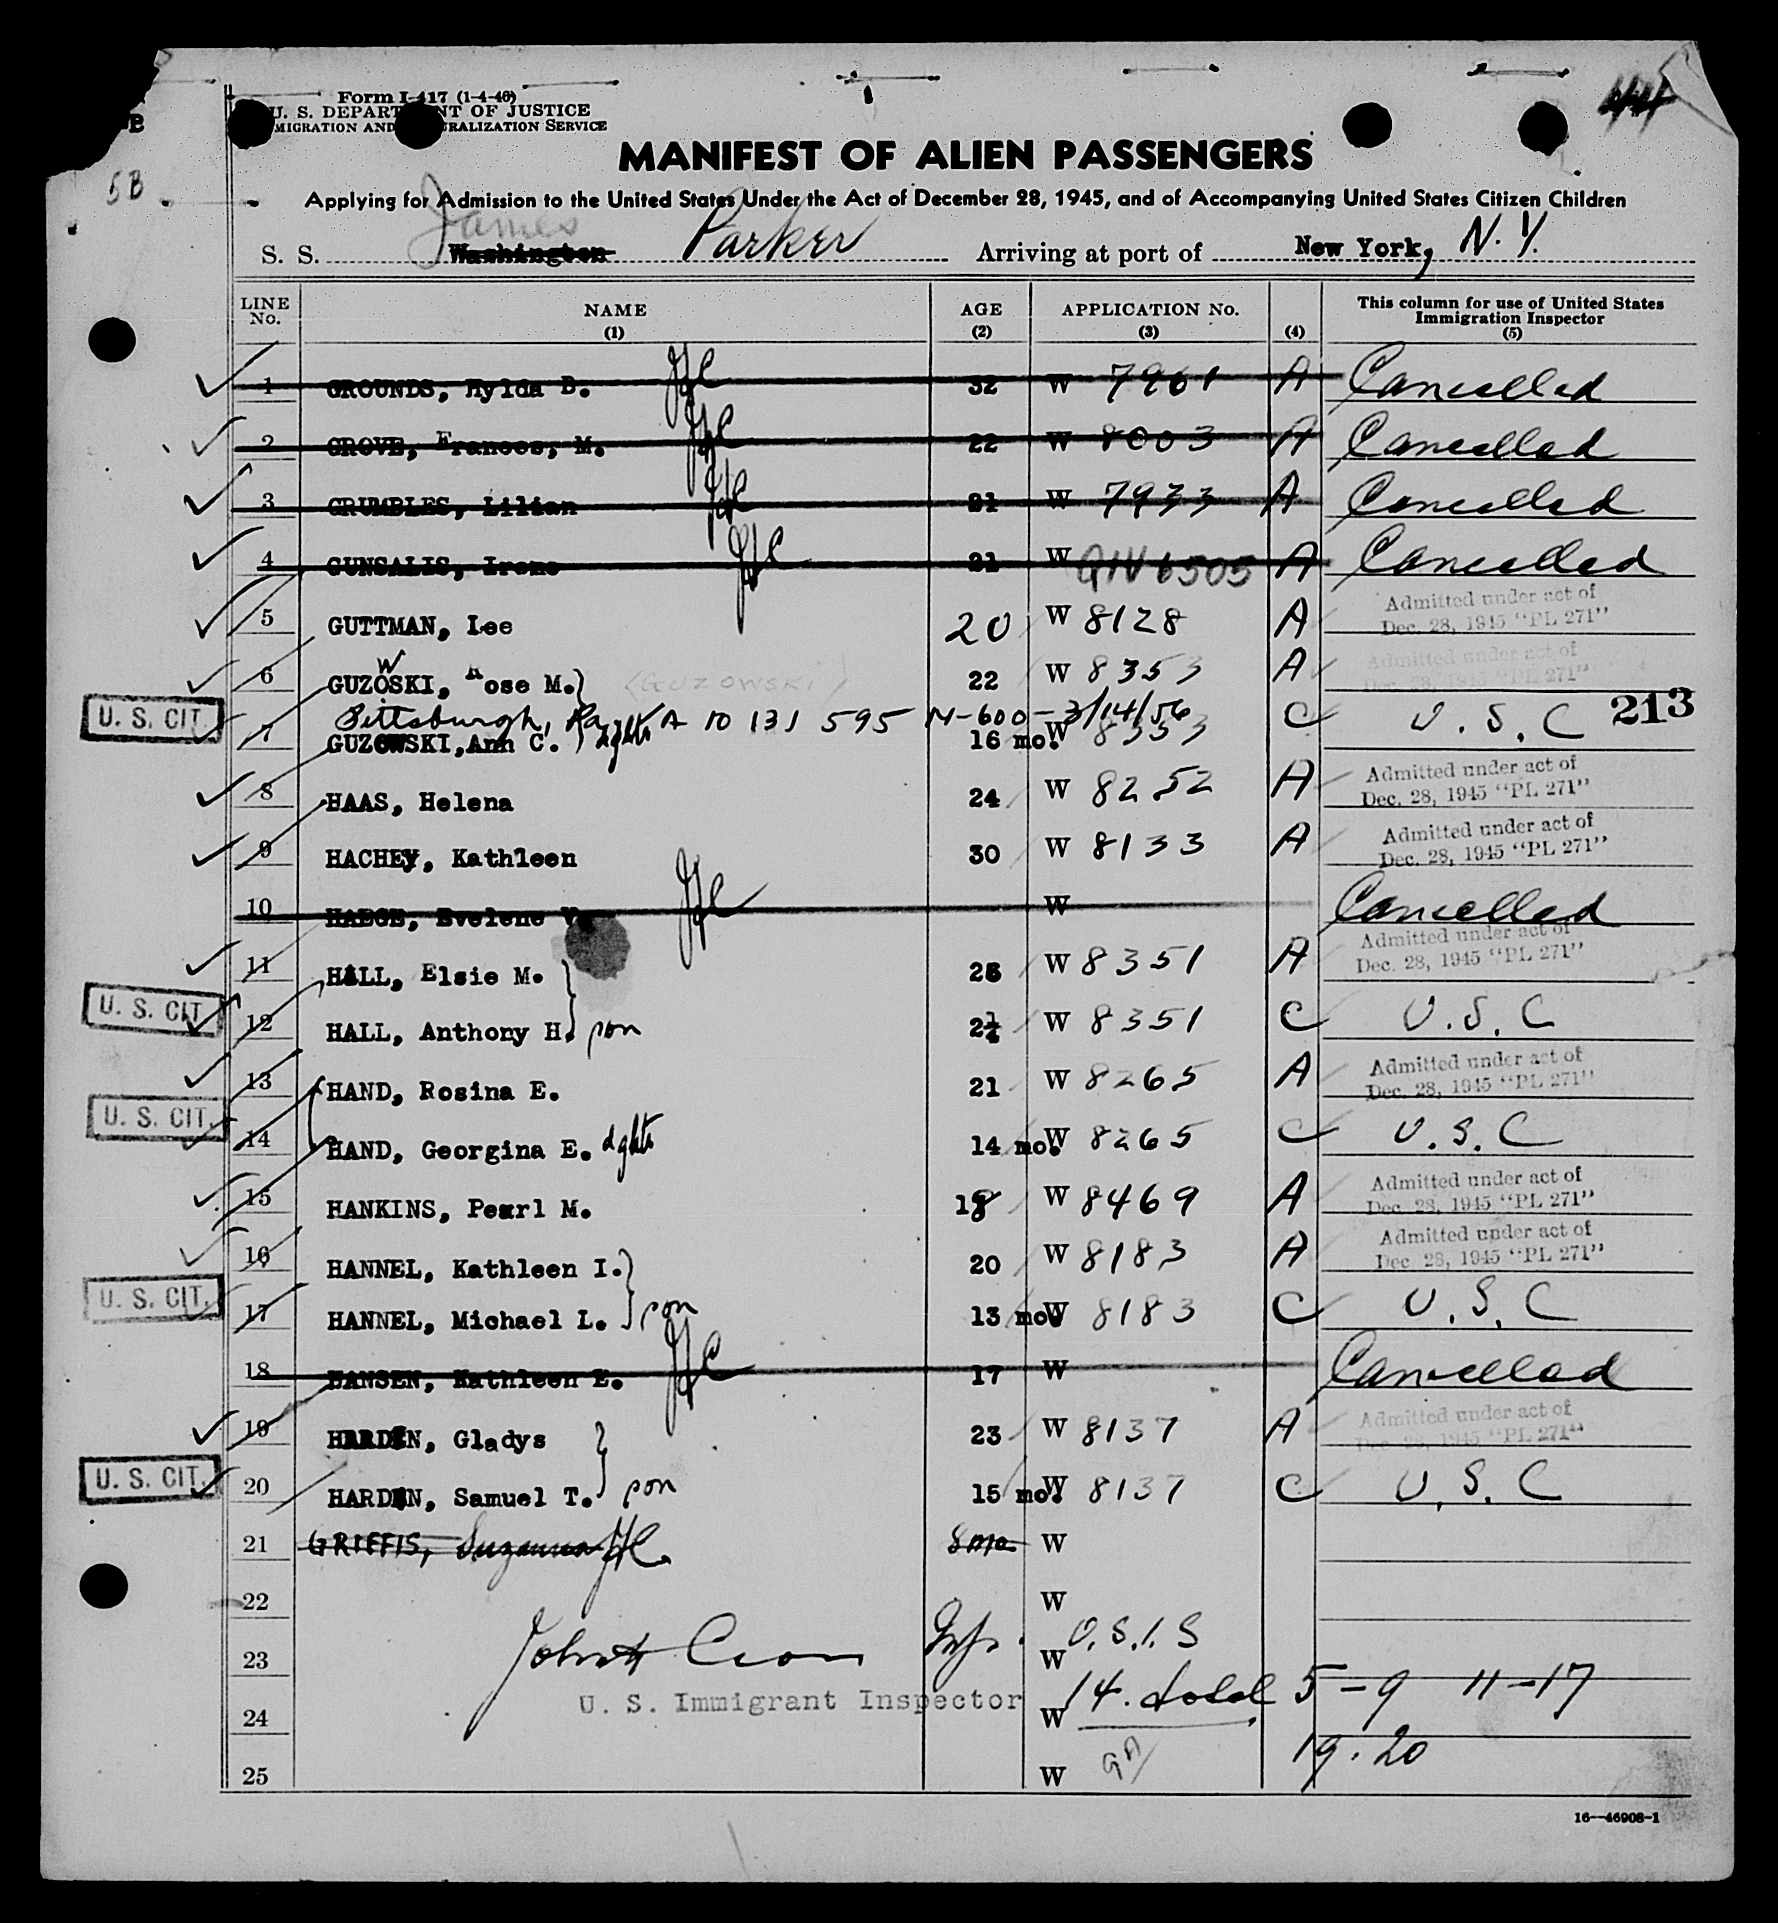 5B
Form I-417 (1-4-46)
U. S. DEPARTMENT OF JUSTICE
IMMIGRATION AND NATURALIZATION SERVICE
MANIFEST OF ALIEN PASSENGERS
Applying for Admission to the United States Under the Act of December 28, 1945, and of Accompanying United States Citizen Children
S. S. James Washington Parker Arriving at port of New York, N.Y.
LINE No. NAME (1) AGE (2) APPLICATION No. (3) (4) This column for use of United States Immigration Inspector (5)
1 GROUNDS, Hylda B. 32 W 7961 A Cancelled
2 GROVE, Frances, M. 22 W 8003 A Cancelled
3 GRUMBLES, Lilian 21 W 7933 A Cancelled
4 GUNSALIS, Irene 21 W 6505 A Cancelled
5 GUTTMAN, Lee 20 W 8128 A Admitted under act of Dec. 28, 1945 "PL 271"
6 GUZOSKI, Rose M. w (GUZOWSKI) 22 W 8353 A Admitted under act of Dec. 28, 1945 "PL 271"
Pittsburgh, Pa A 10 131 595 N-600-3/14/56
U. S. CIT. 7 GUZOWSKI, Ann C. dghtr 16 mo. W 8353 C U.S.C 213
8 HAAS, Helena 24 W 8252 A Admitted under act of Dec. 28, 1945 "PL 271"
9 HACHEY, Kathleen 30 W 8133 A Admitted under act of Dec. 28, 1945 "PL 271"
10 Evelene V. W Cancelled
11 HALL, Elsie M. W 8351 A Admitted under act of Dec. 28, 1945 "PL 271"
U. S. CIT. 12 HALL, Anthony H. son W 8351 C U.S.C
13 HAND, Rosina E. 21 W 8265 A Admitted under act of Dec. 28, 1945 "PL 271"
U. S. CIT. 14 HAND, Georgina E. dghtr 14 mo. W 8265 C U.S.C
15 HANKINS, Pearl M. 18 W 8469 A Admitted under act of Dec. 28, 1945 "PL 271"
16 HANNEL, Kathleen I. 20 W 8183 A Admitted under act of Dec. 28, 1945 "PL 271"
U. S. CIT. 17 HANNEL, Michael L. son 13 mo. W 8183 C U.S.C
18 HANSEN, Kathleen E. 17 W Cancelled
19 HARDIN, Gladys 23 W 8137 A Admitted under act of Dec. 28, 1945 "PL 271"
U. S. CIT. 20 HARDIN, Samuel T. son 15 mo. W 8137 C U.S.C
21 GRIFFIS, Suzanna 8 mo W
22 W
23 John Insp. W U.S.I.S
U. S. Immigrant Inspector
24 W 14. total 5-9 11-17
25 W 19.20
16—46908-1